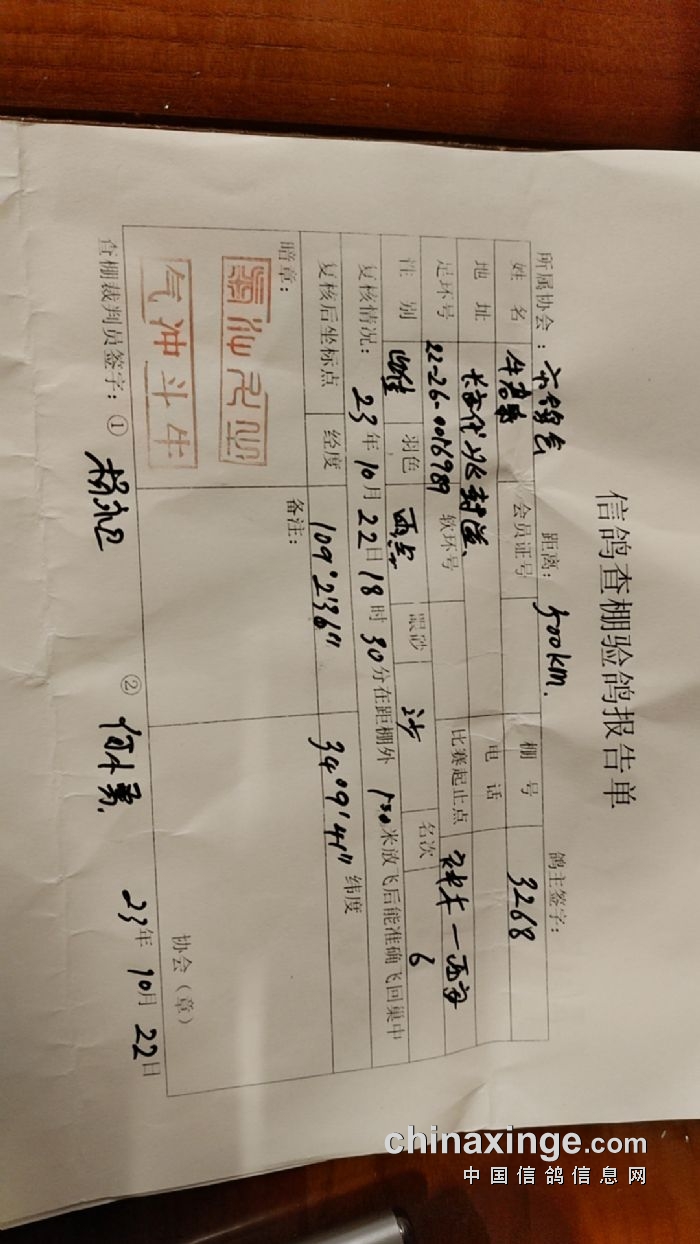 信鸽查棚验鸽报告单
所属协会： 距离：500km. 鸽主签字：
姓名 牛 会员证号 棚号 3268
地址 电话
足环号 22-26-0016989 软环号 比赛起止点
性别 雄 羽色 雨点 眼砂 沙 名次 6
复核情况：23年10月22日18时30分在距棚外 米放飞后能准确飞回巢中
复核后坐标点 经度 109°2'36" 34°9'41" 纬度
暗章： 备注：
气冲斗牛
协会（章）
查棚裁判员签字：① 杨 ② 何 23年10月22日
chinaxinge.com
中国信鸽信息网